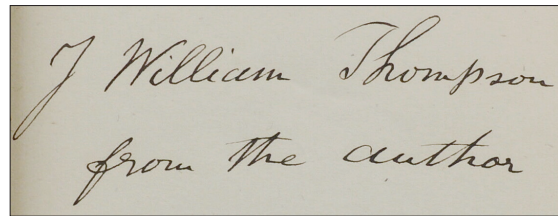 J William Thompson
from the author